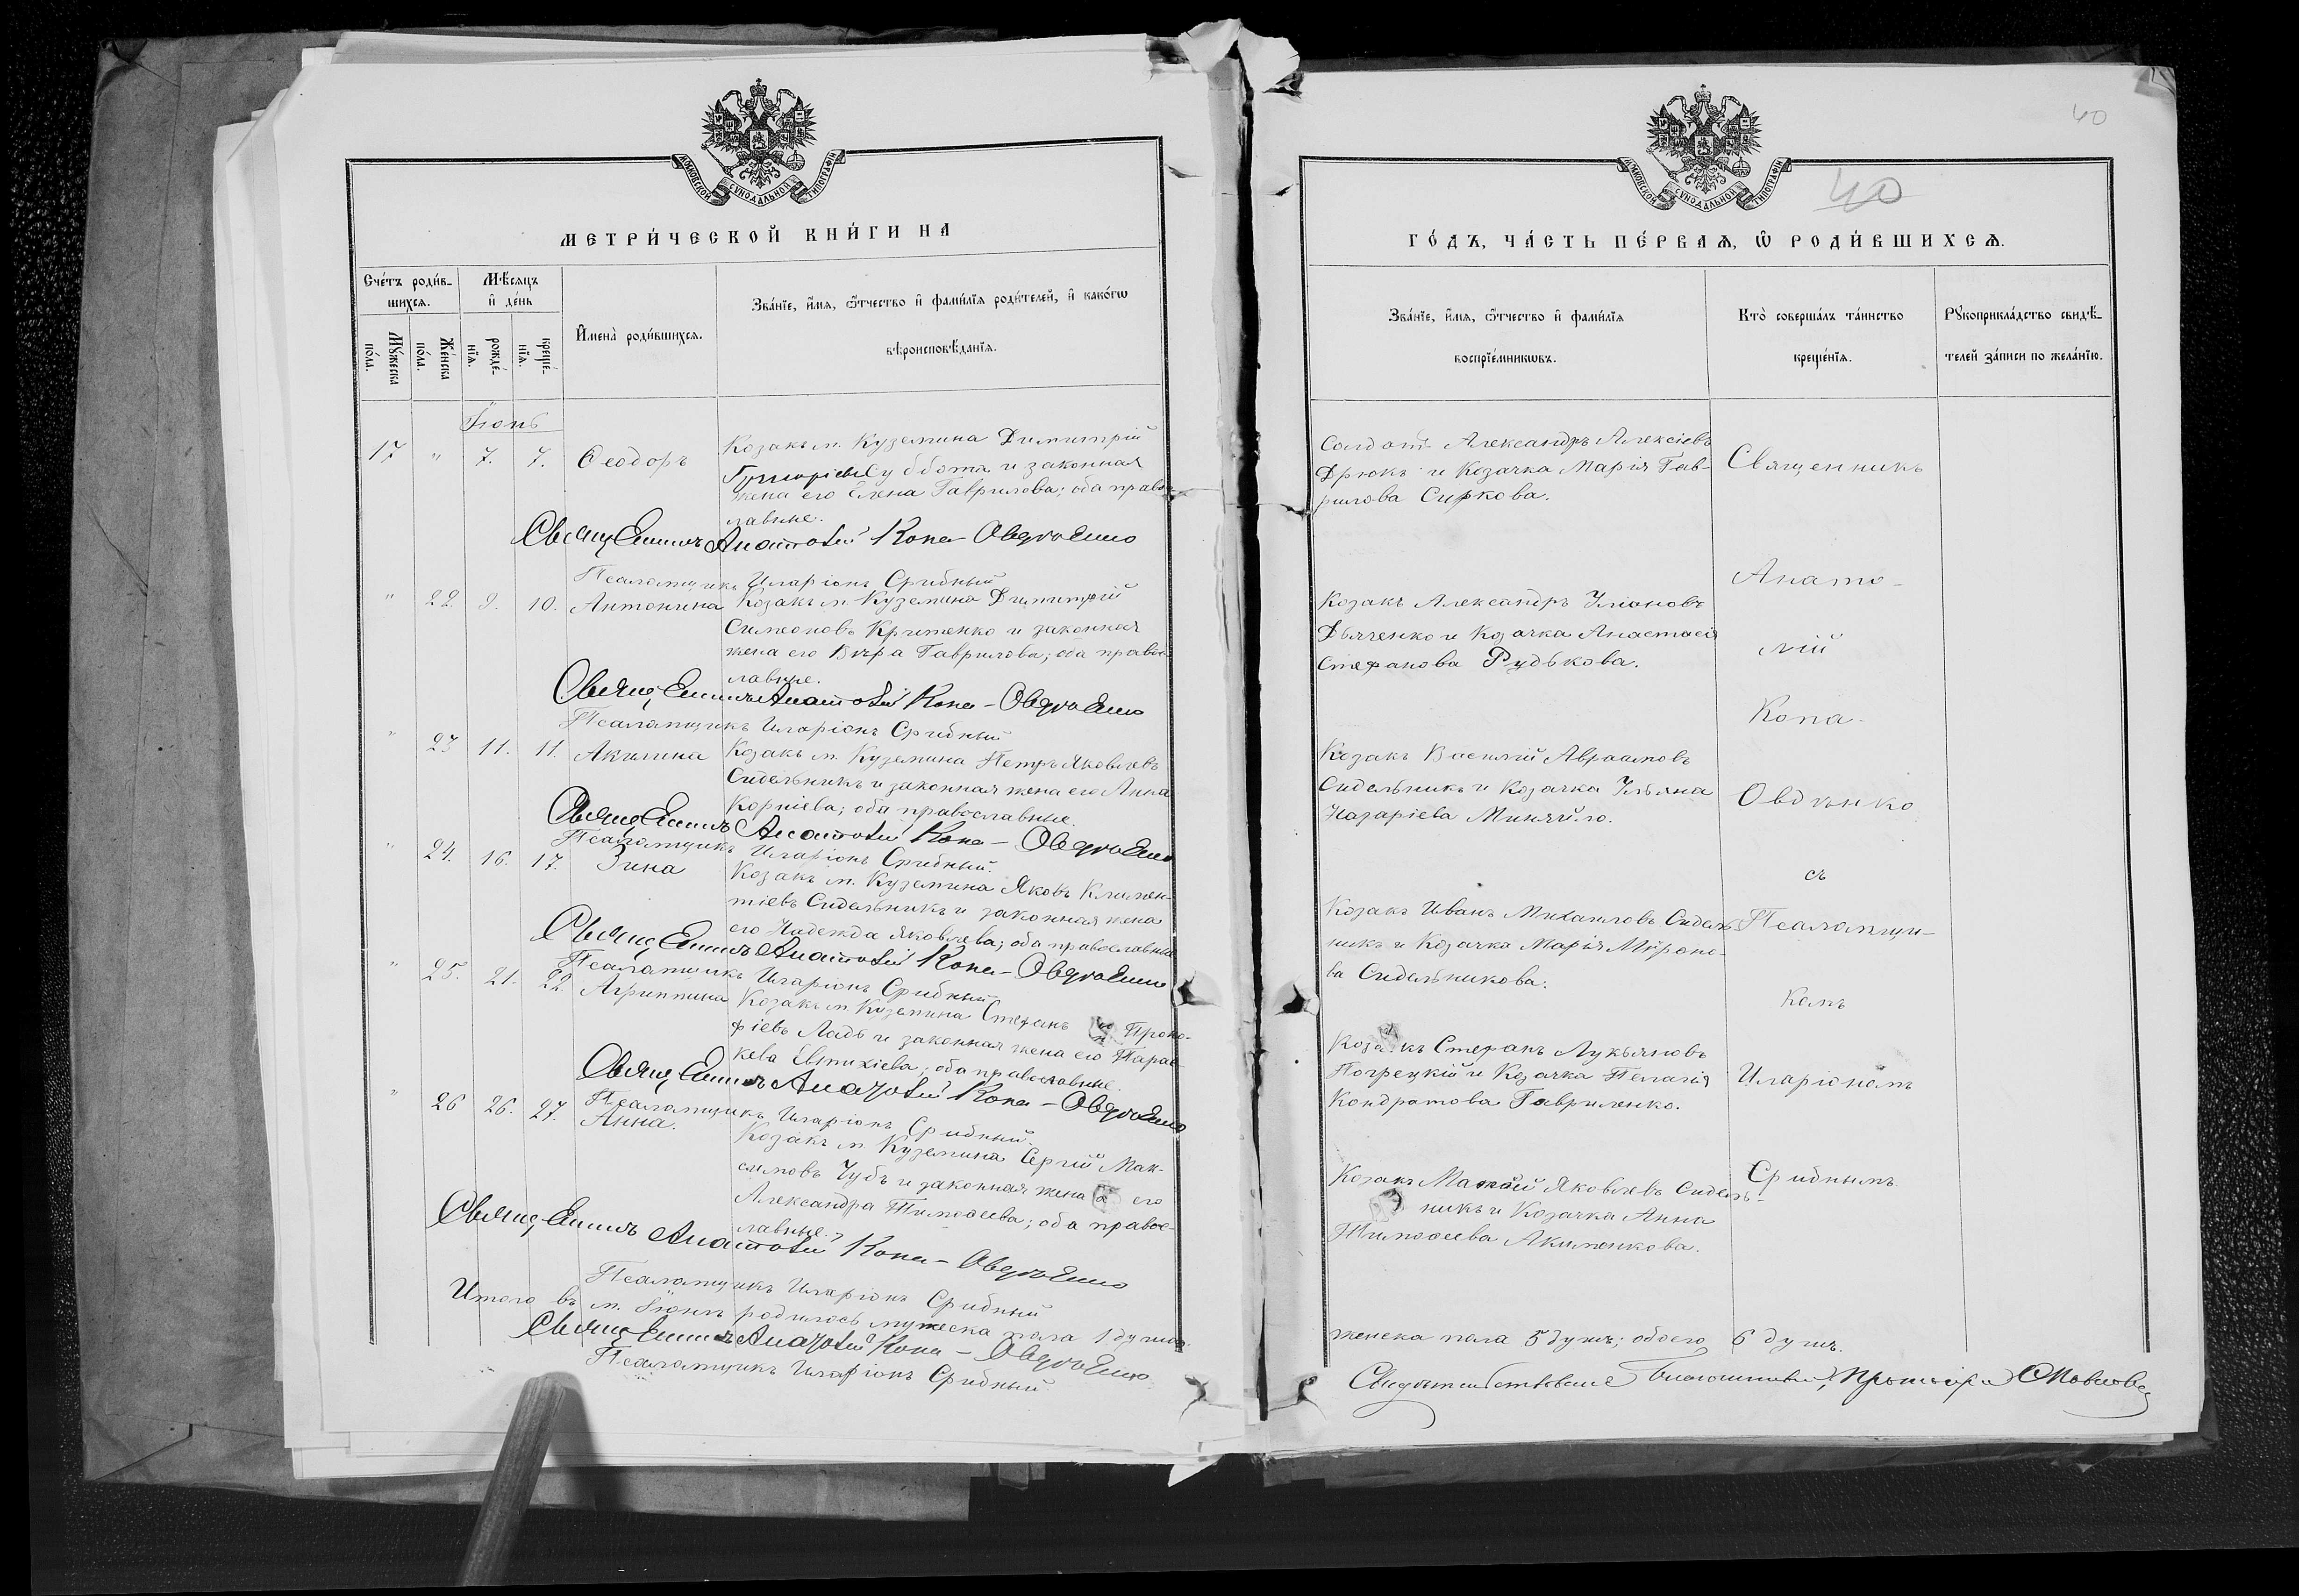 МОСКОВСКОЙ СѴНОДАЛЬНОЙ ТИПОГРАФІИ
МЕТРИ́ЧЕСКОЙ КНИ́ГИ НА
Сче́тъ роди́в-
шихся.
Мѣ́сяцъ
и҆ де́нь
Мꙋ́жеска
по́ла.
Же́нска
по́ла.
рожде́-
нїѧ.
креще́-
нїѧ.
И҆мена̀ роди́вшихсѧ.
Зва́нїе, и҆́мѧ, ѻ҆́тчество и҆ фами́лїѧ роди́телей, и҆ како́гѡ
вѣроисповѣ́данїѧ.
Іюнь
17 " 7. 7. Ѳеодоръ
Козакъ м. Куземина Димитрій
Григоріевъ Суббота и законная
жена его Елена Гаврилова; оба право-
славные.
Священникъ Анатолій Копа-Овдѣенко
Псаломщикъ Иларіонъ Срибный
" 22. 9. 10. Антонина Козакъ м. Куземина Димитрій
Симеоновъ Критенко и законная
жена его Вѣра Гаврилова; оба правос-
лавные.
Священникъ Анатолій Копа-Овдѣенко
Псаломщикъ Иларіонъ Срибный
" 23 11. 11. Акилина Козакъ м. Куземина Петръ Яковлевъ
Сидельникъ и законная жена его Анна
Корніева; оба православные.
Священникъ Анатолій Копа-Овдѣенко
Псаломщикъ Иларіонъ Срибный.
" 24. 16. 17. Зина Козакъ м. Куземина Яковъ Климен-
тіевъ Сидельникъ и законная жена
его Надежда Яковлева; оба православные
Священникъ Анатолій Копа-Овдѣенко
Псаломщикъ Иларіонъ Срибный
" 25. 21. 22. Агриппина Козакъ м. Куземина Стефанъ Проко-
фіевъ Ладъ и законная жена его Парас-
кева Евтихіева; оба православные.
Священникъ Анатолій Копа-Овдѣенко
Псаломщикъ Иларіонъ Срибный.
" 26 26. 27. Анна. Козакъ м. Куземина Сергій Мак-
симовъ Чубъ и законная жена его
Александра Тимоѳеева; оба правос-
лавные.
Священникъ Анатолій Копа-Овдѣенко
Псаломщикъ Иларіонъ Срибный
Итого въ м. Іюнѣ родилось мужеска пола 1 душа
Священникъ Анатолій Копа-Овдѣенко
Псаломщикъ Иларіонъ Срибный
40
МОСКОВСКОЙ СѴНОДАЛЬНОЙ ТИПОГРАФІИ
40
ГО́ДЪ, ЧА́СТЬ ПЕ́РВАѦ, Ѡ҆ РОДИ́ВШИХСѦ.
Зва́нїе, и҆́мѧ, ѻ҆́тчество и҆ фами́лїѧ
воспрїе́мникѡвъ.
Кто̀ соверша́лъ та́инство
креще́нїѧ.
Рꙋкоприкла́дство свидѣ́-
телей за́писи по жела́нїю.
Солдатъ Александръ Алексіевъ
Дрюкъ и Козачка Марія Гав-
рилова Сиркова.
Козакъ Александръ Уліановъ
Дьяченко и Козачка Анастасія
Стефанова Рудькова.
Козакъ Василій Авраамовъ
Сидельникъ и Козачка Ульяна
Назаріева Миняйло.
Козакъ Иванъ Михаиловъ Сидель-
никъ и Козачка Марія Мѵроно-
ва Сидельникова.
Козакъ Стефанъ Лукьяновъ
Погрецкій и Козачка Пелагія
Кондратова Гавриленко.
Козакъ Яковлевъ Сидель-
никъ и Козачка Анна
Тимоѳеева Акименкова.
Священникъ
Анато-
лій
Копа-
Овдѣнко
съ
Псаломщи-
комъ
Иларіономъ
Срибнымъ
женска пола 5 душъ; обоего 6 душъ.
Свидѣтельствовалъ Благочинный,